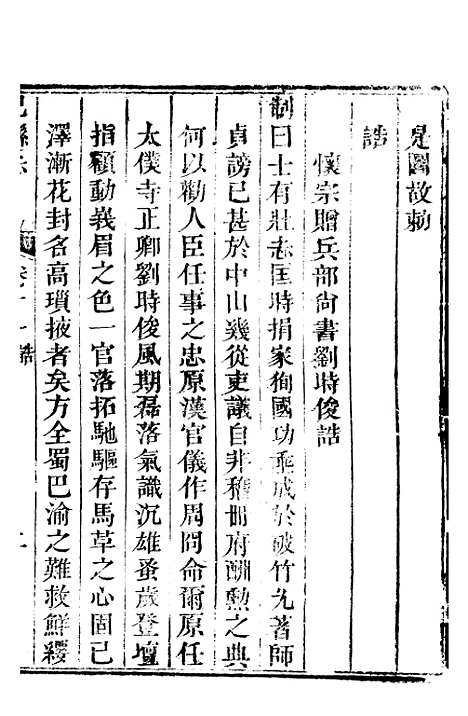 是圖故勅
誥
懷宗贈兵部尚書劉時俊誥
制曰士有壯志匡時捐家徇國功垂成於破竹尤著師
貞謗已甚於中山幾從吏議自非稽冊府酬勲之典
何以勸人臣任事之忠原漢官儀作周冏命爾原任
太僕寺正卿劉時俊風期磊落氣識沉雄蚤歲登壇
指顧動羲眉之色一官落拓馳驅存馬草之心固已
澤漸花封名高瑣掖者矣方全蜀巴渝之難救鮮纓